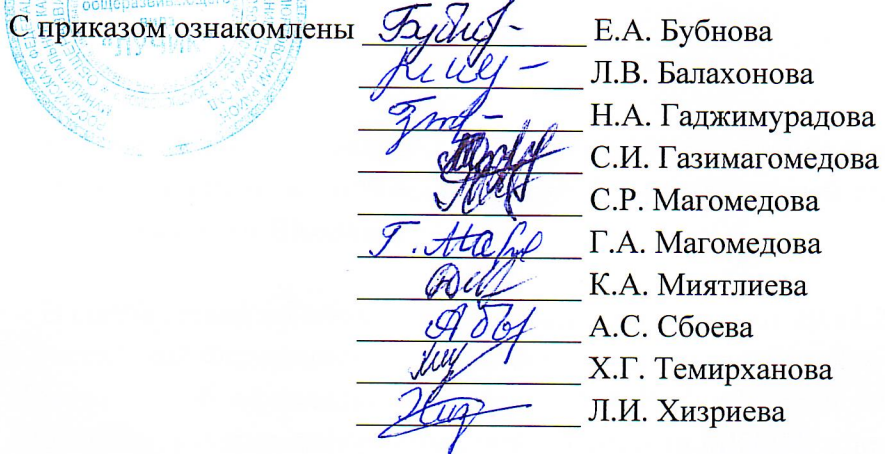 общеразвивающего
вида
"ЛУЧИК"
С приказом ознакомлены Е.А. Бубнова
Л.В. Балахонова
Н.А. Гаджимурадова
С.И. Газимагомедова
С.Р. Магомедова
Г.А. Магомедова
К.А. Миятлиева
А.С. Сбоева
Х.Г. Темирханова
Л.И. Хизриева